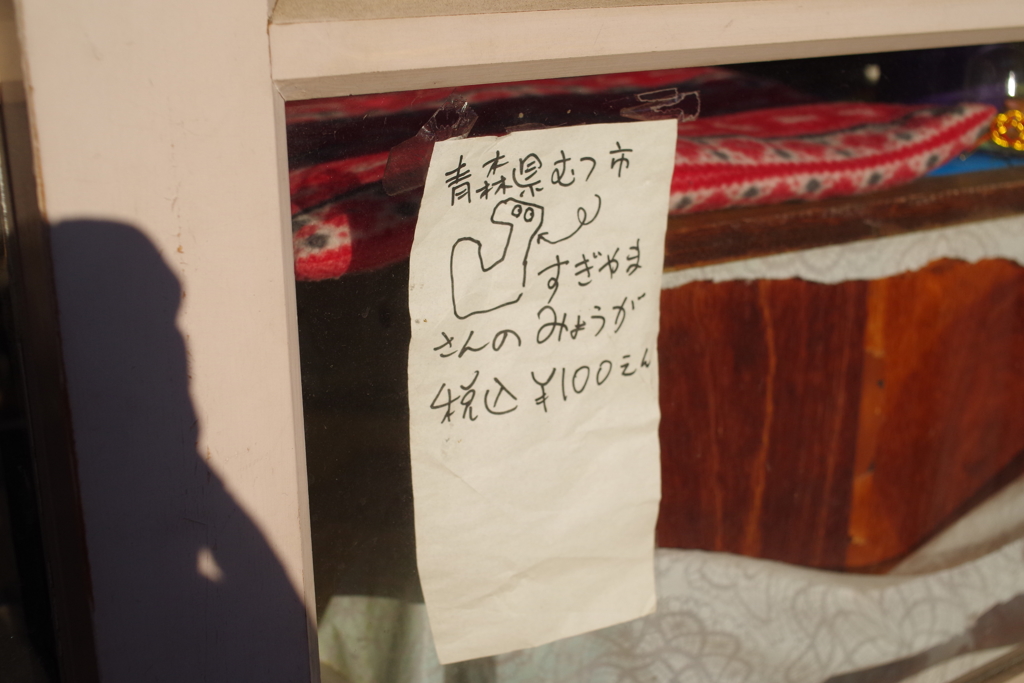 青森県むつ市
すぎやま
さんのみょうが
税込¥100えん